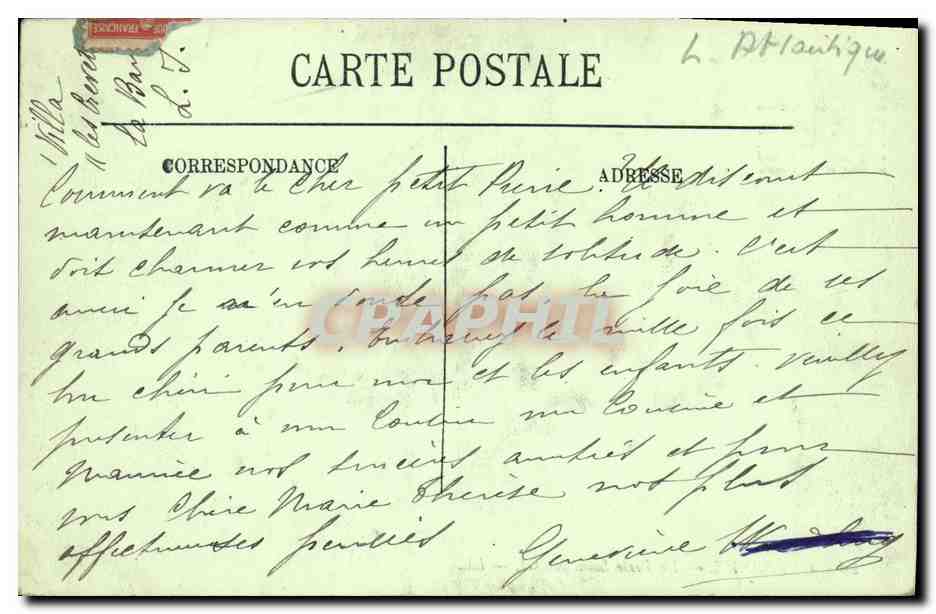 L. Atlantique
CARTE POSTALE
Villa
La
L. I.
CORRESPONDANCE
ADRESSE
Comment va le cher petit Pierre. Il discourt
maintenant comme un petit homme et
doit charmer vos heures de solitude. C'est
aussi je n'en doute pas, la joie de ses
grands parents. Embrassez le mille fois ce
bon chéri pour moi et les enfants. Veuillez
présenter à mon Cousin ma Cousine et
Maurice nos sincères amitiés et pour
vous Chère Marie Thérèse nos plus
affectueuses pensées
Geneviève
CPAPHIL